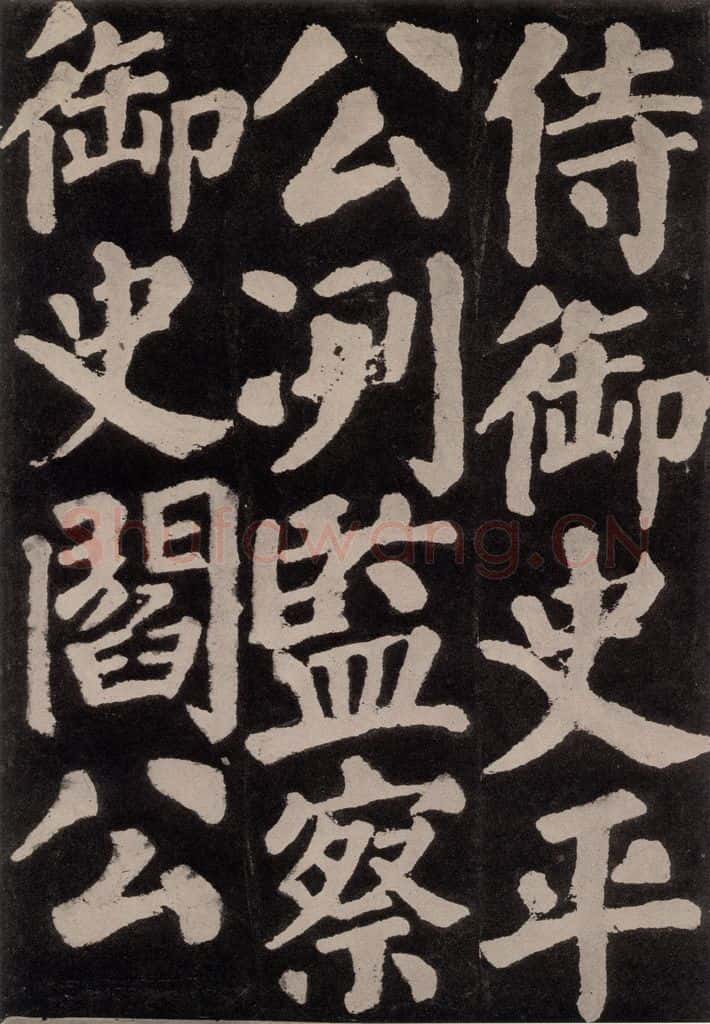 侍御史平
公冽監察
御史閻公
Shufawang.CN